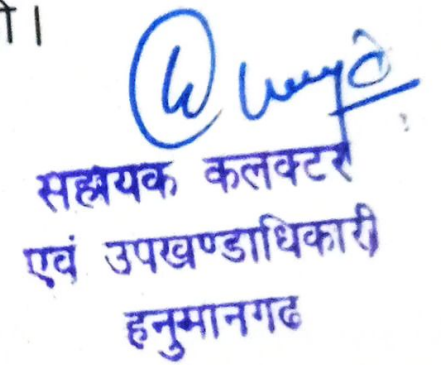 सहायक कलक्टर
एवं उपखण्डाधिकारी
हनुमानगढ